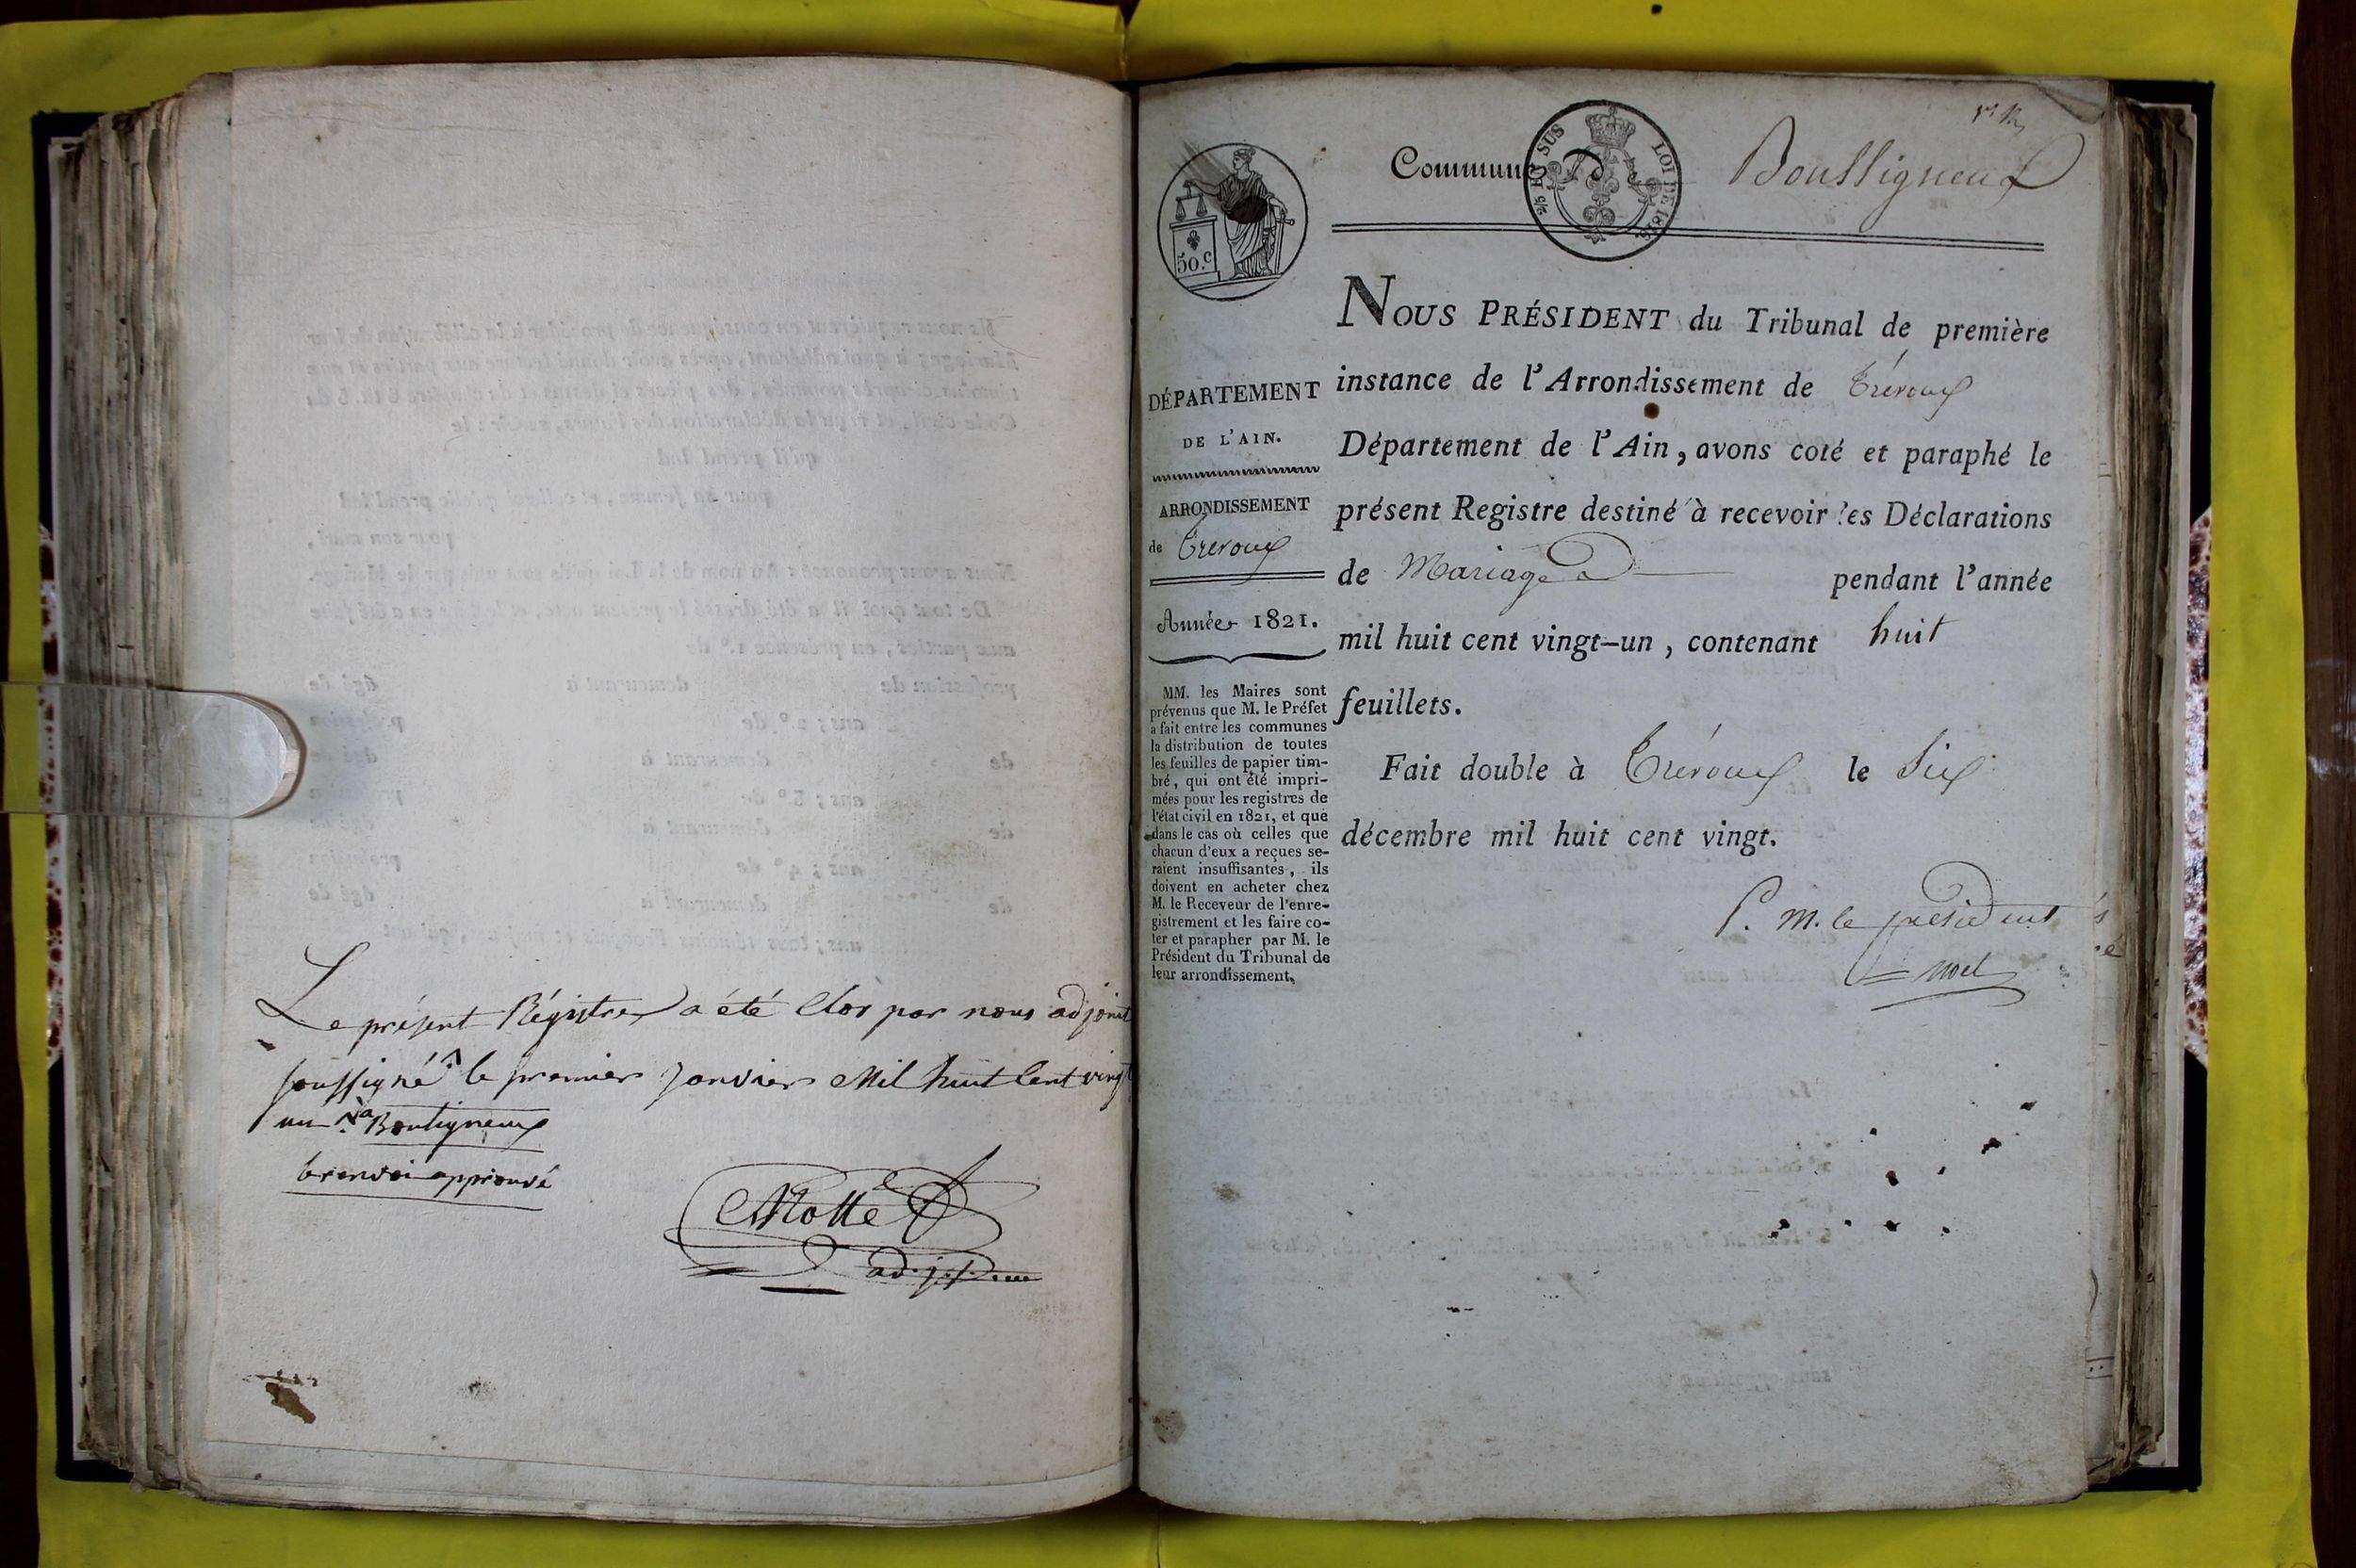 Le présent Régistre a été Clos par nous adjoint
soussigné ^ le premier Janvier Mil huit Cent vingt
un ^a Bouligneux
le renvoi approuvé
Motte
adj.
Commune de Bouligneux
50.c
LOI DE 1816.
NOUS PRÉSIDENT du Tribunal de première
instance de l'Arrondissement de Trévoux
Département de l'Ain, avons coté et paraphé le
présent Registre destiné à recevoir les Déclarations
de Mariage pendant l'année
mil huit cent vingt-un, contenant huit
feuillets.
Fait double à Trévoux le Six
décembre mil huit cent vingt.
P. M. le président
Noel
DÉPARTEMENT
DE L'AIN.
ARRONDISSEMENT
de Trevoux
Année 1821.
MM. les Maires sont
prévenus que M. le Préfet
a fait entre les communes
la distribution de toutes
les feuilles de papier tim-
bré, qui ont été impri-
mées pour les registres de
l'état civil en 1821, et que
dans le cas où celles que
chacun d'eux a reçues se-
raient insuffisantes, ils
doivent en acheter chez
M. le Receveur de l'enre-
gistrement et les faire co-
ter et parapher par M. le
Président du Tribunal de
leur arrondissement.